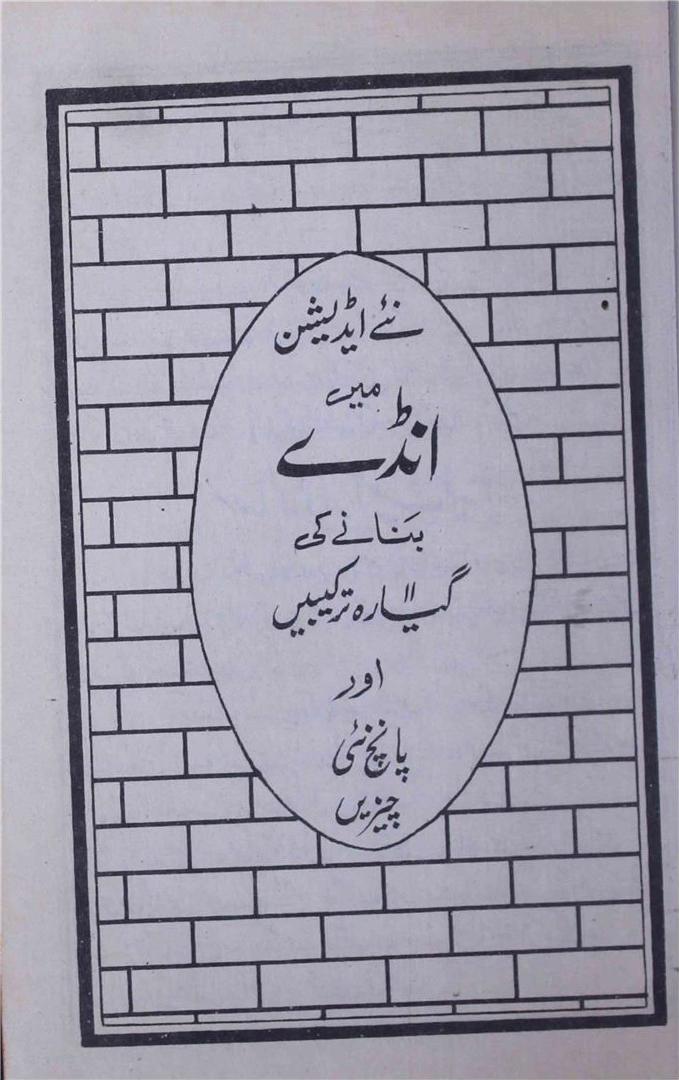 نئے ایڈیشن
میں
انڈے
بنانے کی
گیارہ ۱۱ ترکیبیں
اور
پانچ نئی
چیزیں